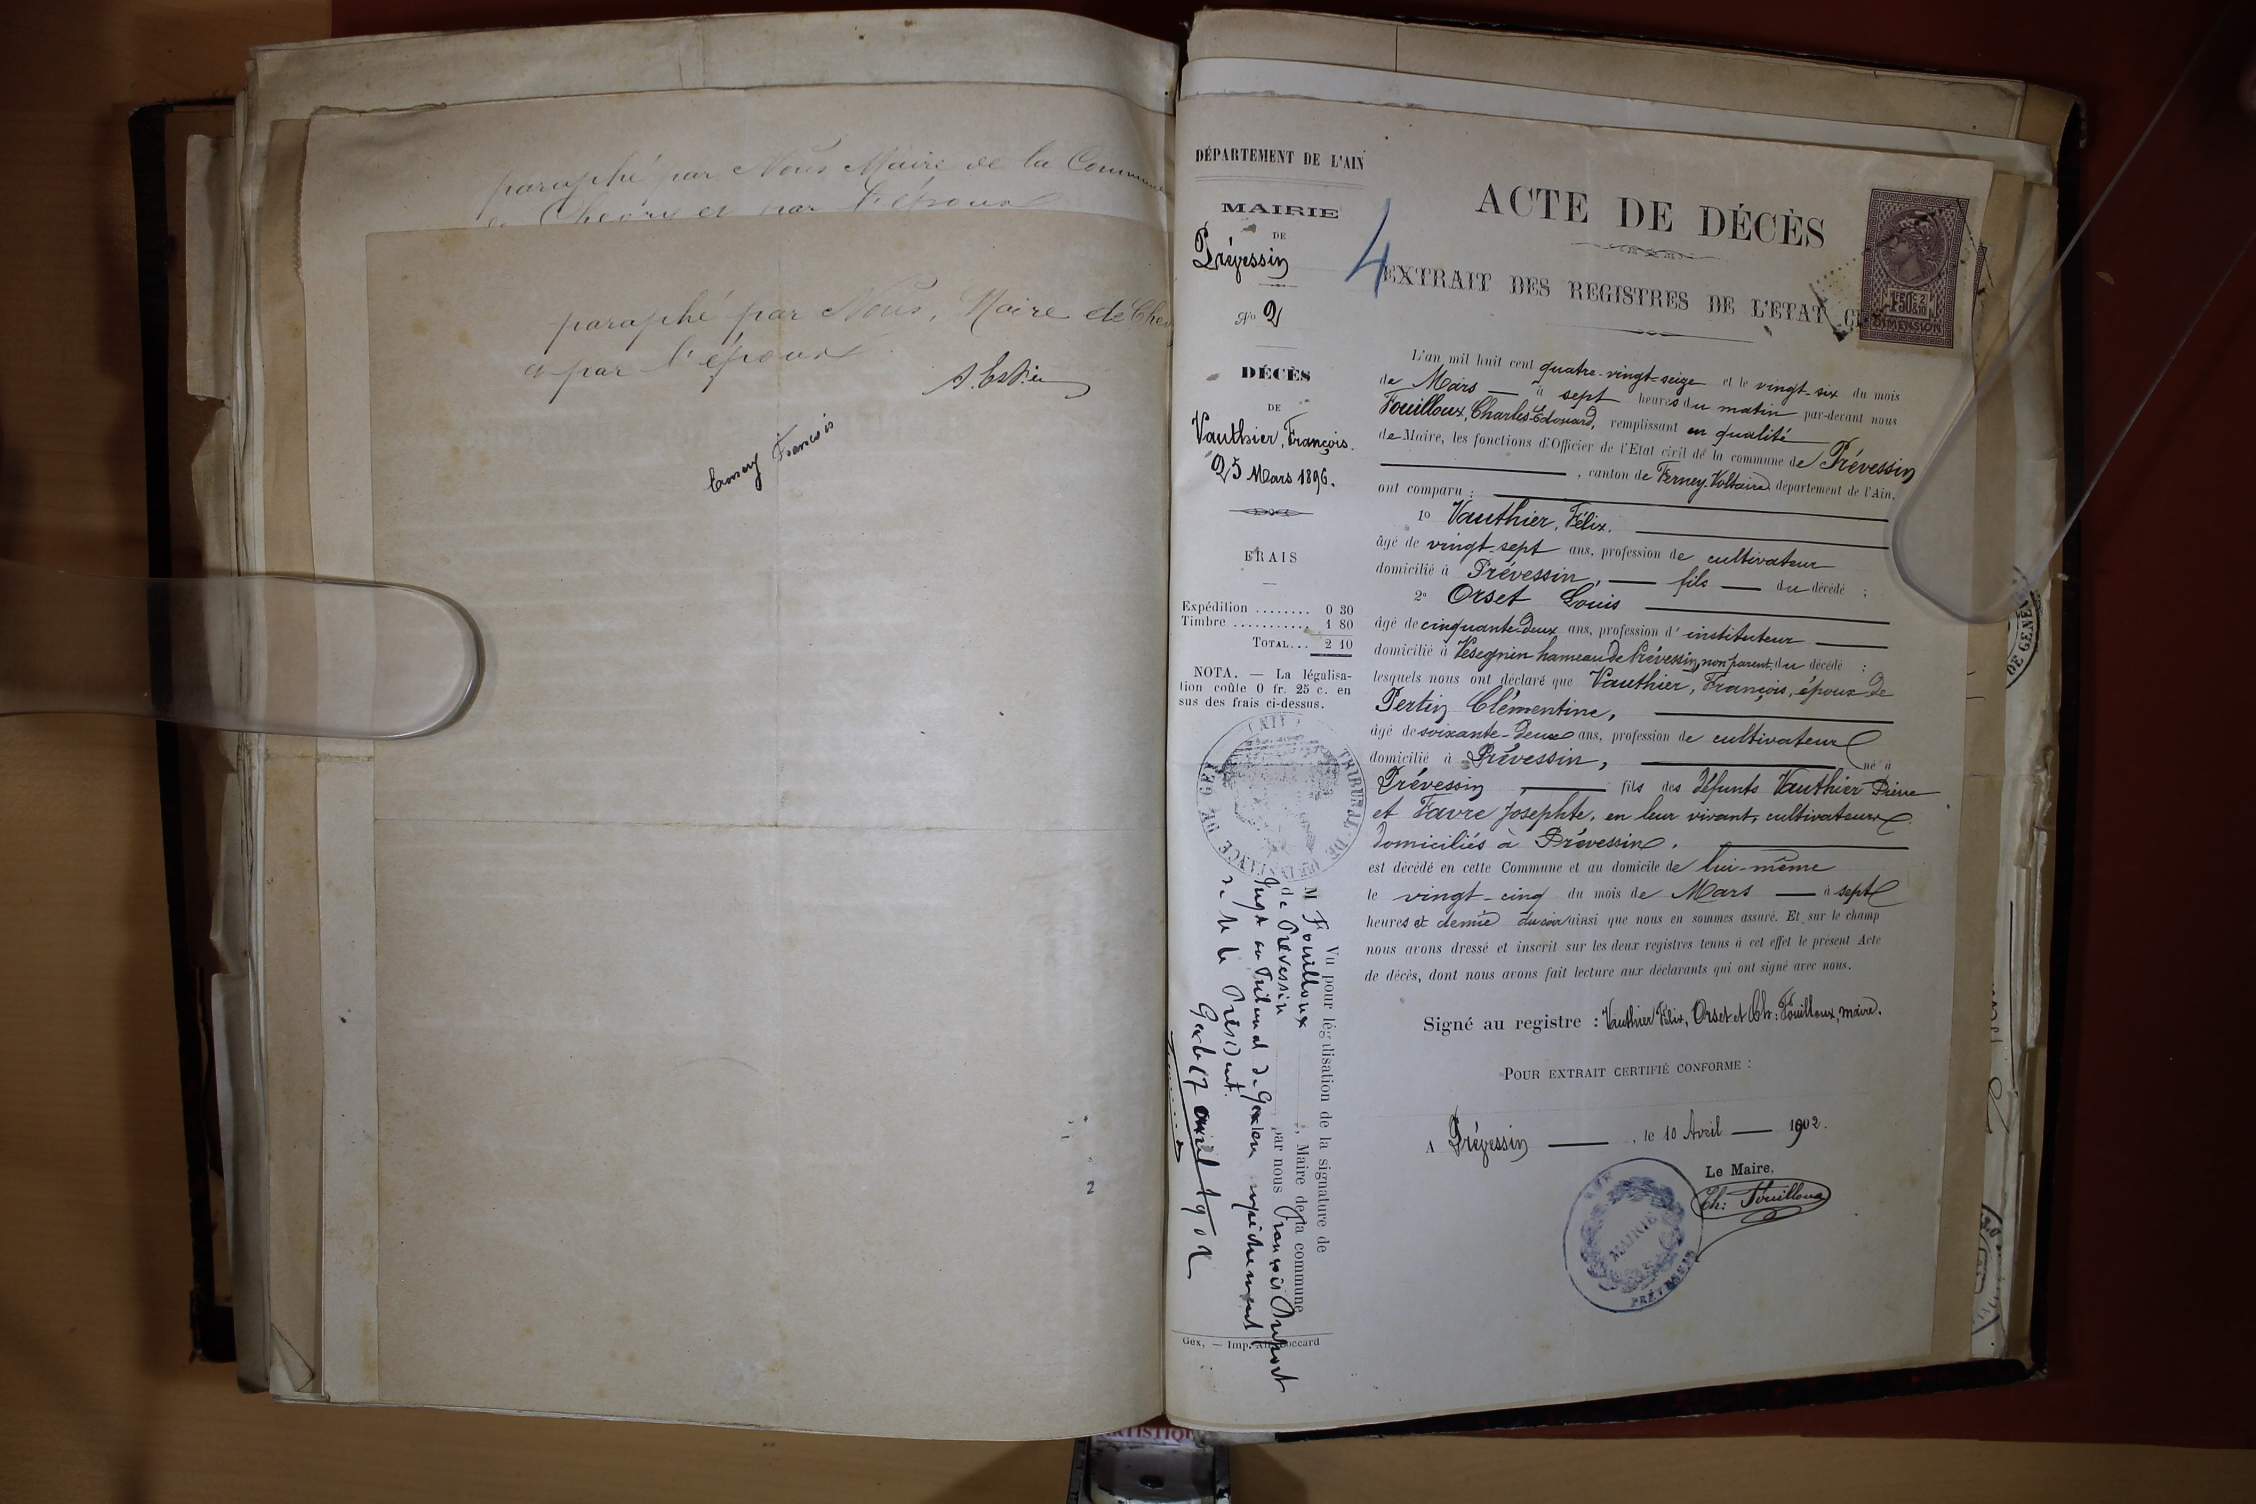 paraphé par Nous Maire de la Commune
de Chevry et par l'époux
paraphé par Nous, Maire de Chev
et par l'époux
François
DÉPARTEMENT DE L'AIN
MAIRIE
DE
Prévessin
No 2
DÉCÈS
DE
Vauthier, François.
25 Mars 1896.
FRAIS
Expédition ........ 0 30
Timbre ........... 1 80
TOTAL... 2 10
NOTA. — La légalisa-
tion coûte 0 fr. 25 c. en
sus des frais ci-dessus.
TRIBUNAL DE
DE GEX
Vu pour légalisation de la signature de
M Fouilloux, Maire de la commune
de Prévessin par nous François
Juge au Tribunal de Gex
de M le Président.
Gex le 17 avril 1902
Gex, — Imp.
4
ACTE DE DÉCÈS
EXTRAIT DES REGISTRES DE L'ETAT
DIMENSION
L'an mil huit cent quatre-vingt-seize et le vingt-six du mois
de Mars — à sept heures du matin par-devant nous
Fouilloux, Charles-Edouard, remplissant en qualité
de Maire, les fonctions d'Officier de l'Etat civil de la commune de Prévessin
, canton de Ferney-Voltaire département de l'Ain,
ont comparu :
1o Vauthier, Félix.
âgé de vingt-sept ans, profession de cultivateur
domicilié à Prévessin, — fils — du décédé ;
2o Orset Louis
âgé de cinquante-deux ans, profession d'instituteur
domicilié à Vésegnin hameau de Prévessin, non parent du décédé ;
lesquels nous ont déclaré que Vauthier, François, époux de
Pertin Clémentine,
âgé de soixante-deux ans, profession de cultivateur
domicilié à Prévessin, — né à
Prévessin, — fils des défunts Vauthier Pierre
et Favre Josephte, en leur vivant, cultivateurs
domiciliés à Prévessin.
est décédé en cette Commune et au domicile de lui-même
le vingt-cinq du mois de Mars — à sept
heures et demie du soir ainsi que nous en sommes assuré. Et sur le champ
nous avons dressé et inscrit sur les deux registres tenus à cet effet le présent Acte
de décès, dont nous avons fait lecture aux déclarants qui ont signé avec nous.
Signé au registre : Vauthier Félix, Orset et Ch: Fouilloux, maire.
POUR EXTRAIT CERTIFIÉ CONFORME :
A Prévessin — , le 10 Avril — 1902.
Le Maire,
Ch: Fouilloux
MAIRIE
DE GENÈ